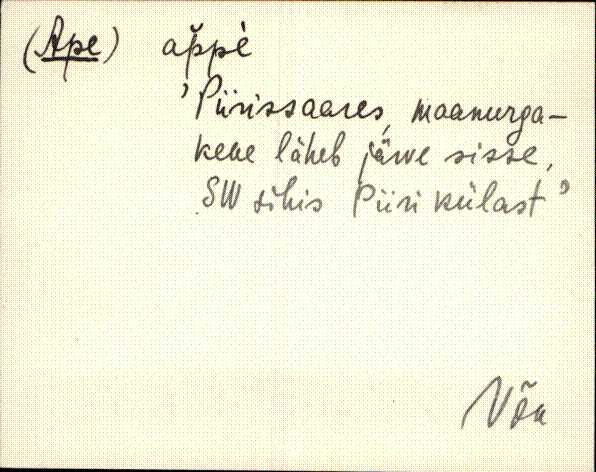 (Ape) ap̌pè
'Piirissaares, maanurga-
kene läheb järve sisse,
SW sihis Piiri külast'
Võn